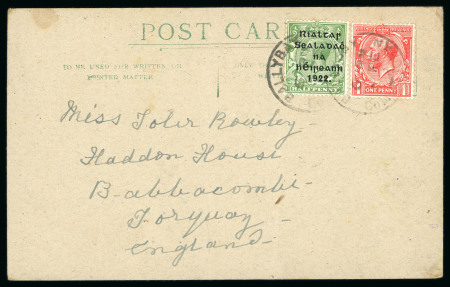 POST CARD
TO BE USED FOR WRITTEN OR
PRINTED MATTER
ONLY
Rialtas
Sealadaċ
na
hÉireann
1922.
HALFPENNY
ONE PENNY
BALLYBA
Miss Toler Rowley
Haddon House
Babbacombe
Torquay
England